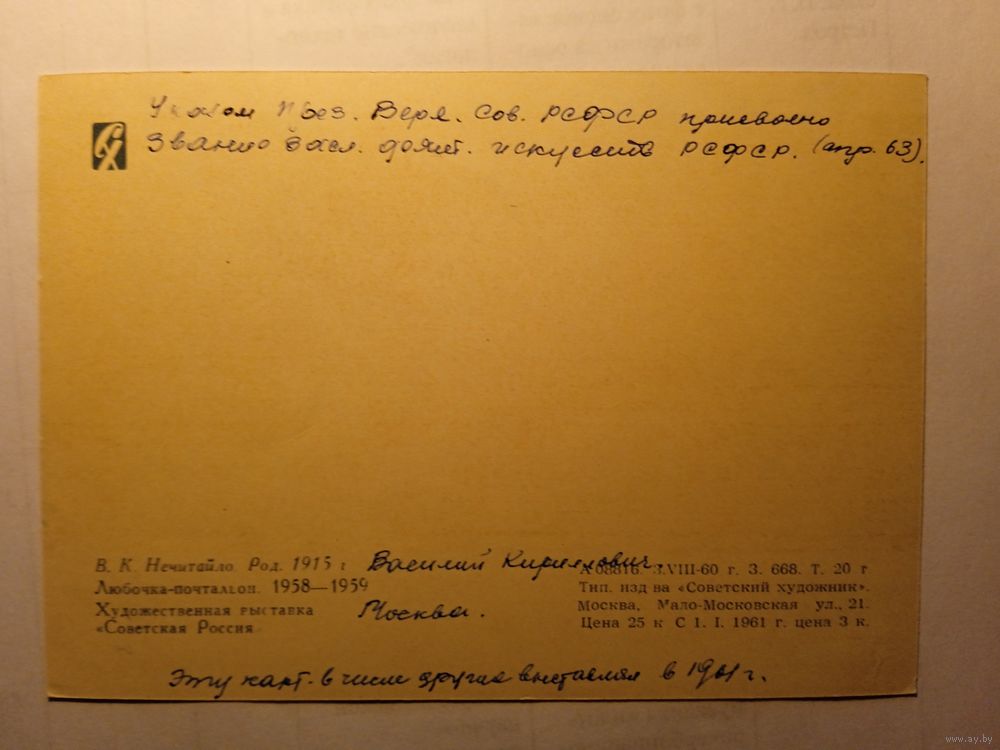 Указом През. Верх. Сов. РСФСР присвоено
звание засл. деят. искусств РСФСР. (апр. 63).
СХ
В. К. Нечитайло. Род. 1915 г Василий Кириллович.
Любочка-почтальон. 1958—1959
Художественная выставка Москва.
«Советская Россия
А 08816. 3.VIII-60 г. З. 668. Т. 20 т
Тип. изд ва «Советский художник».
Москва, Мало-Московская ул., 21.
Цена 25 к С 1. I. 1961 г. цена 3 к.
Эту карт. в числе других выставлял в 1961 г.
www.ay.by